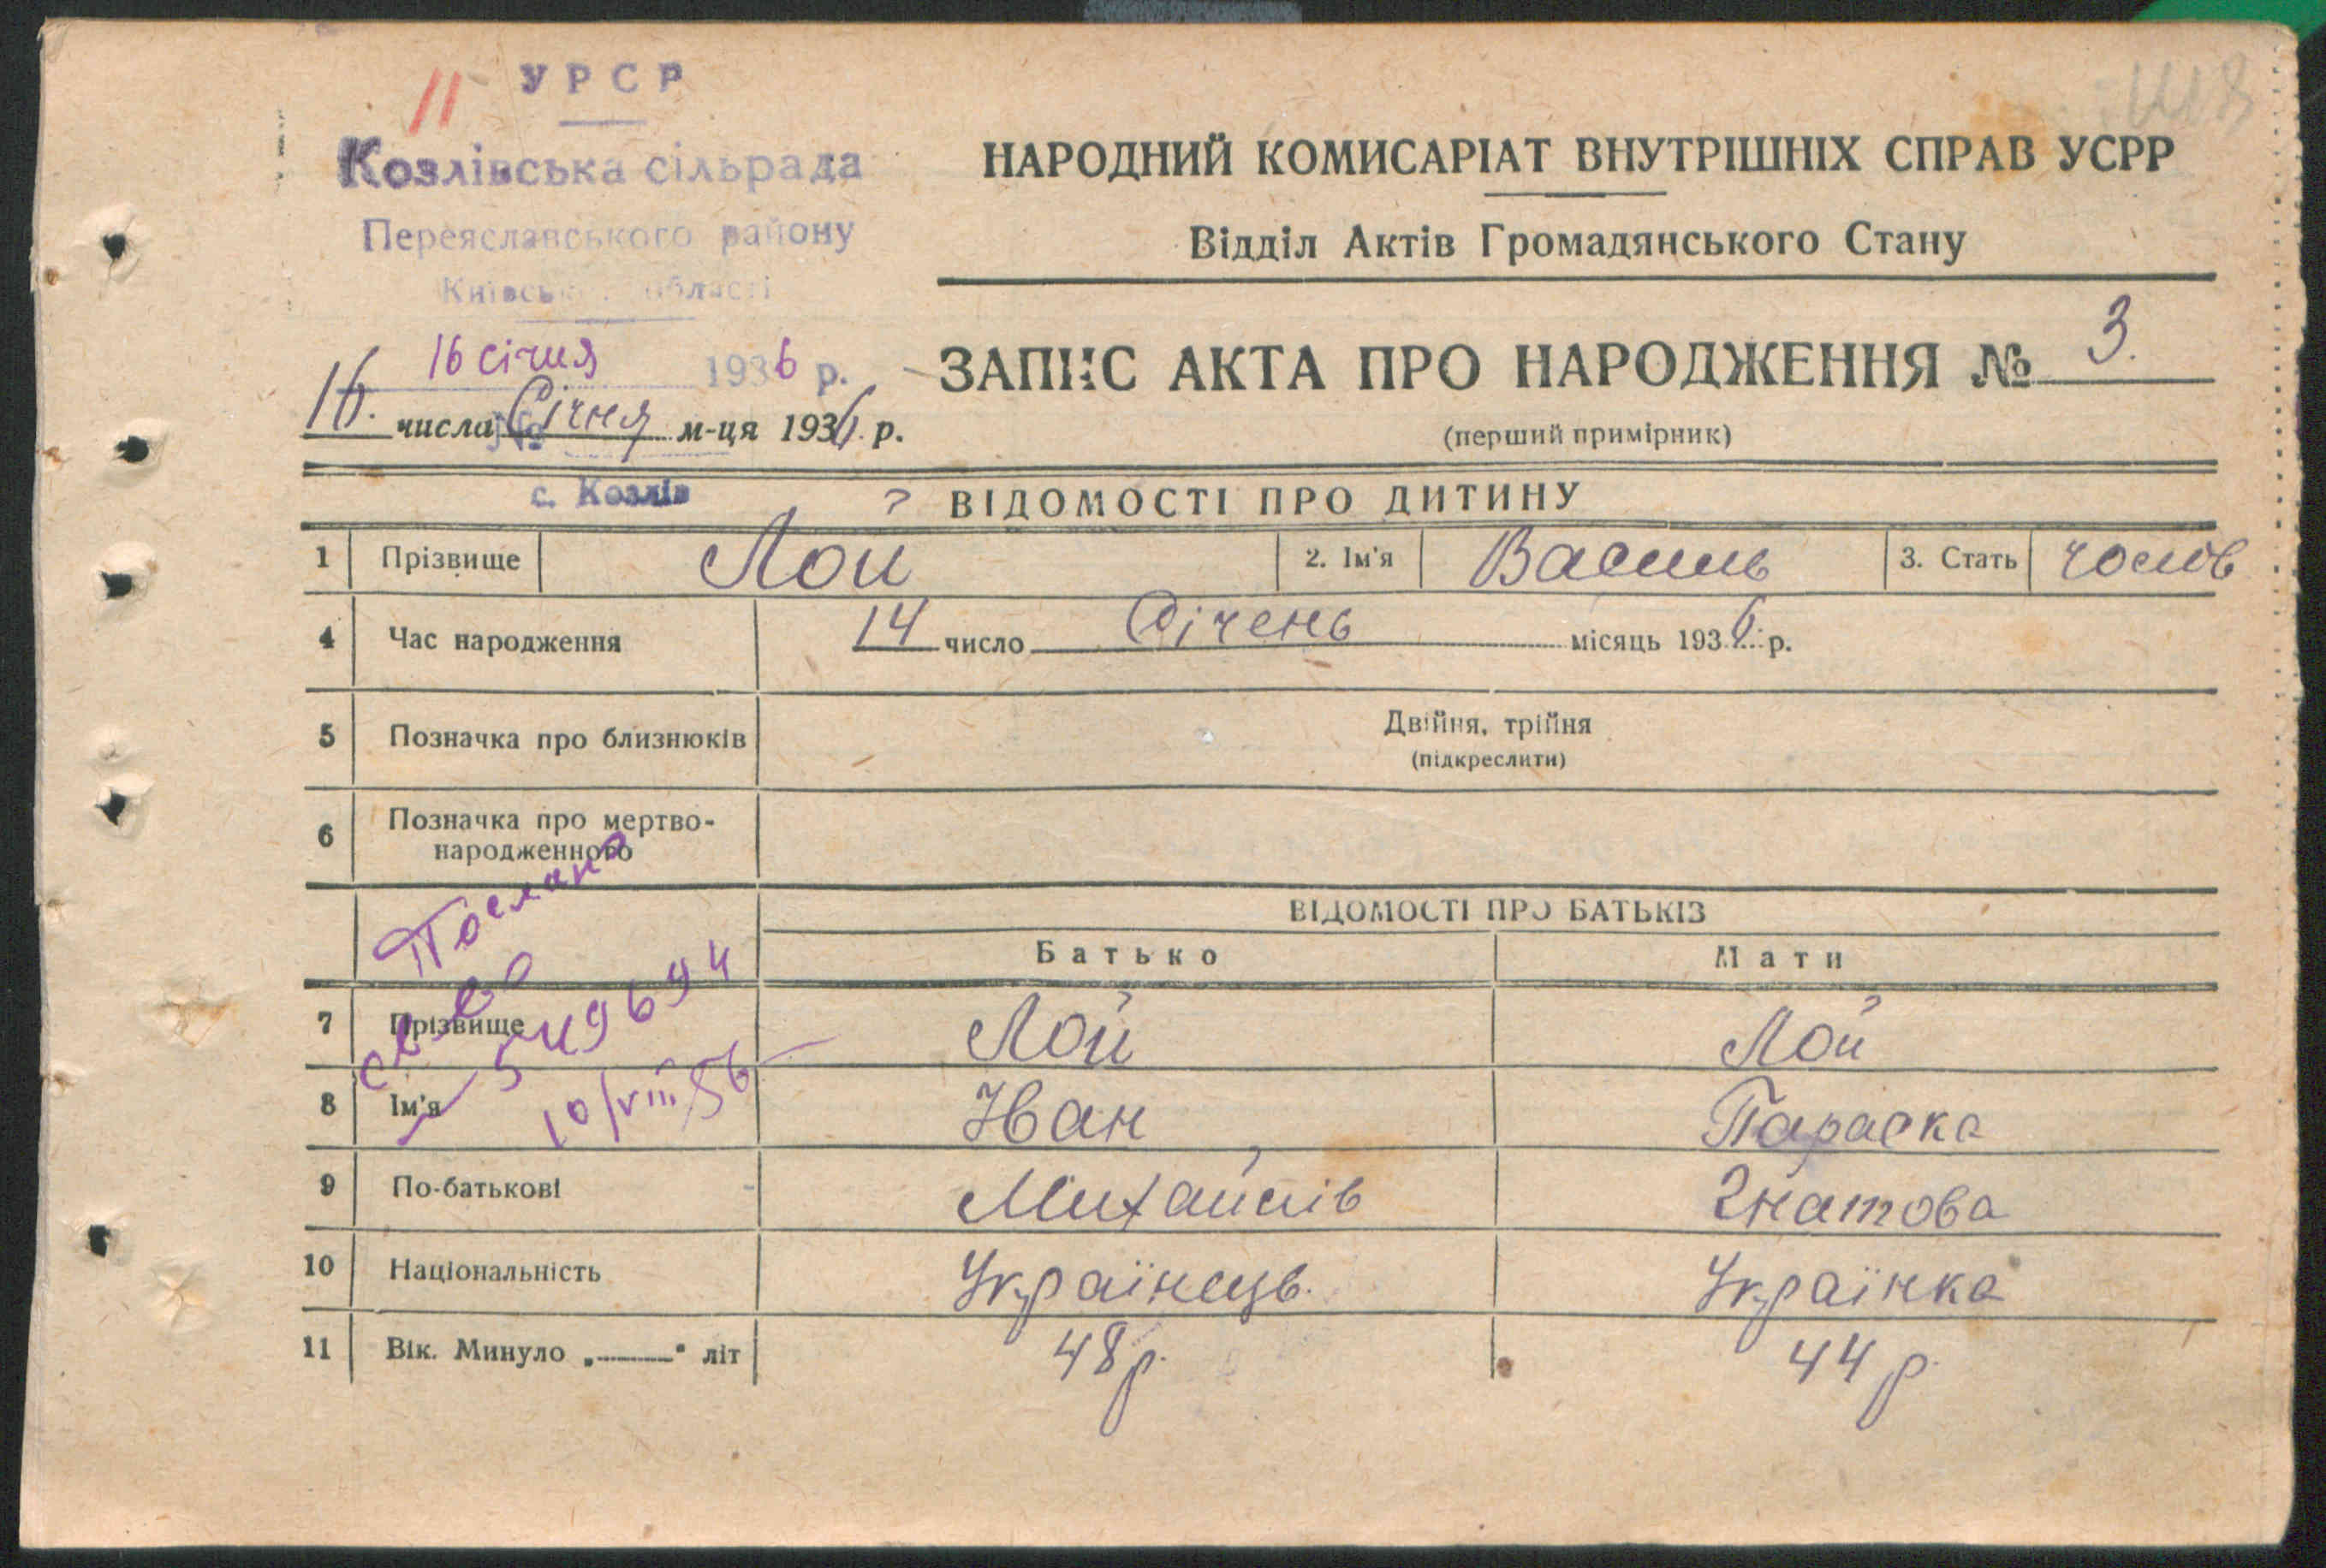 11
УРСР
Козлівська сільрада
Переяславського району
Київської області
16 січня 1936 р.
16. числа Січня м-ця 1936 р.
№
с. Козлів
НАРОДНИЙ КОМИСАРІАТ ВНУТРІШНІХ СПРАВ УСРР
Відділ Актів Громадянського Стану
ЗАПИС АКТА ПРО НАРОДЖЕННЯ № 3.
(перший примірник)
ВІДОМОСТІ ПРО ДИТИНУ
1 Прізвище Лой 2. Ім'я Василь 3. Стать чолов
4 Час народження 14 число Січень місяць 1936 р.
5 Позначка про близнюків Двійня, трійня
(підкреслити)
6 Позначка про мертво-
народженного
ВІДОМОСТІ ПРО БАТЬКІВ
Батько Мати
7 Прізвище Лой Лой
8 Ім'я Іван Параска
9 По-батькові Михайлів Гнатова
10 Національність Українець. Українка
11 Вік. Минуло „ “ літ 48 р. 44 р.
Послано
549694
10/VIII 56